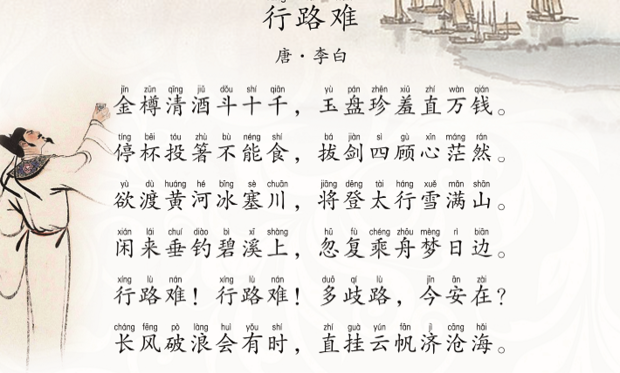 行路难
唐·李白
jīn zūn qīng jiǔ dǒu shí qiān yù pán zhēn xiū zhí wàn qián
金樽清酒斗十千，玉盘珍羞直万钱。
tíng bēi tóu zhù bù néng shí bá jiàn sì gù xīn máng rán
停杯投箸不能食，拔剑四顾心茫然。
yù dù huáng hé bīng sè chuān jiāng dēng tài háng xuě mǎn shān
欲渡黄河冰塞川，将登太行雪满山。
xián lái chuí diào bì xī shàng hū fù chéng zhōu mèng rì biān
闲来垂钓碧溪上，忽复乘舟梦日边。
xíng lù nán xíng lù nán duō qí lù jīn ān zài
行路难！行路难！多歧路，今安在？
cháng fēng pò làng huì yǒu shí zhí guà yún fān jì cāng hǎi
长风破浪会有时，直挂云帆济沧海。